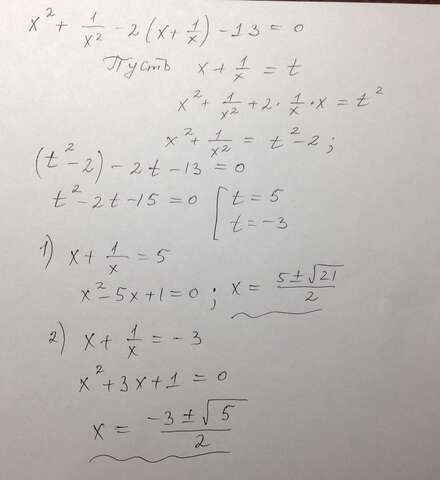 x² + 1/x² - 2(x + 1/x) - 13 = 0
Пусть x + 1/x = t
x² + 1/x² + 2 · 1/x · x = t²
x² + 1/x² = t² - 2 ;
(t² - 2) - 2t - 13 = 0
t² - 2t - 15 = 0 [ t = 5
t = -3
1) x + 1/x = 5
x² - 5x + 1 = 0 ; x = (5 ± √21)/2
2) x + 1/x = -3
x² + 3x + 1 = 0
x = (-3 ± √5)/2